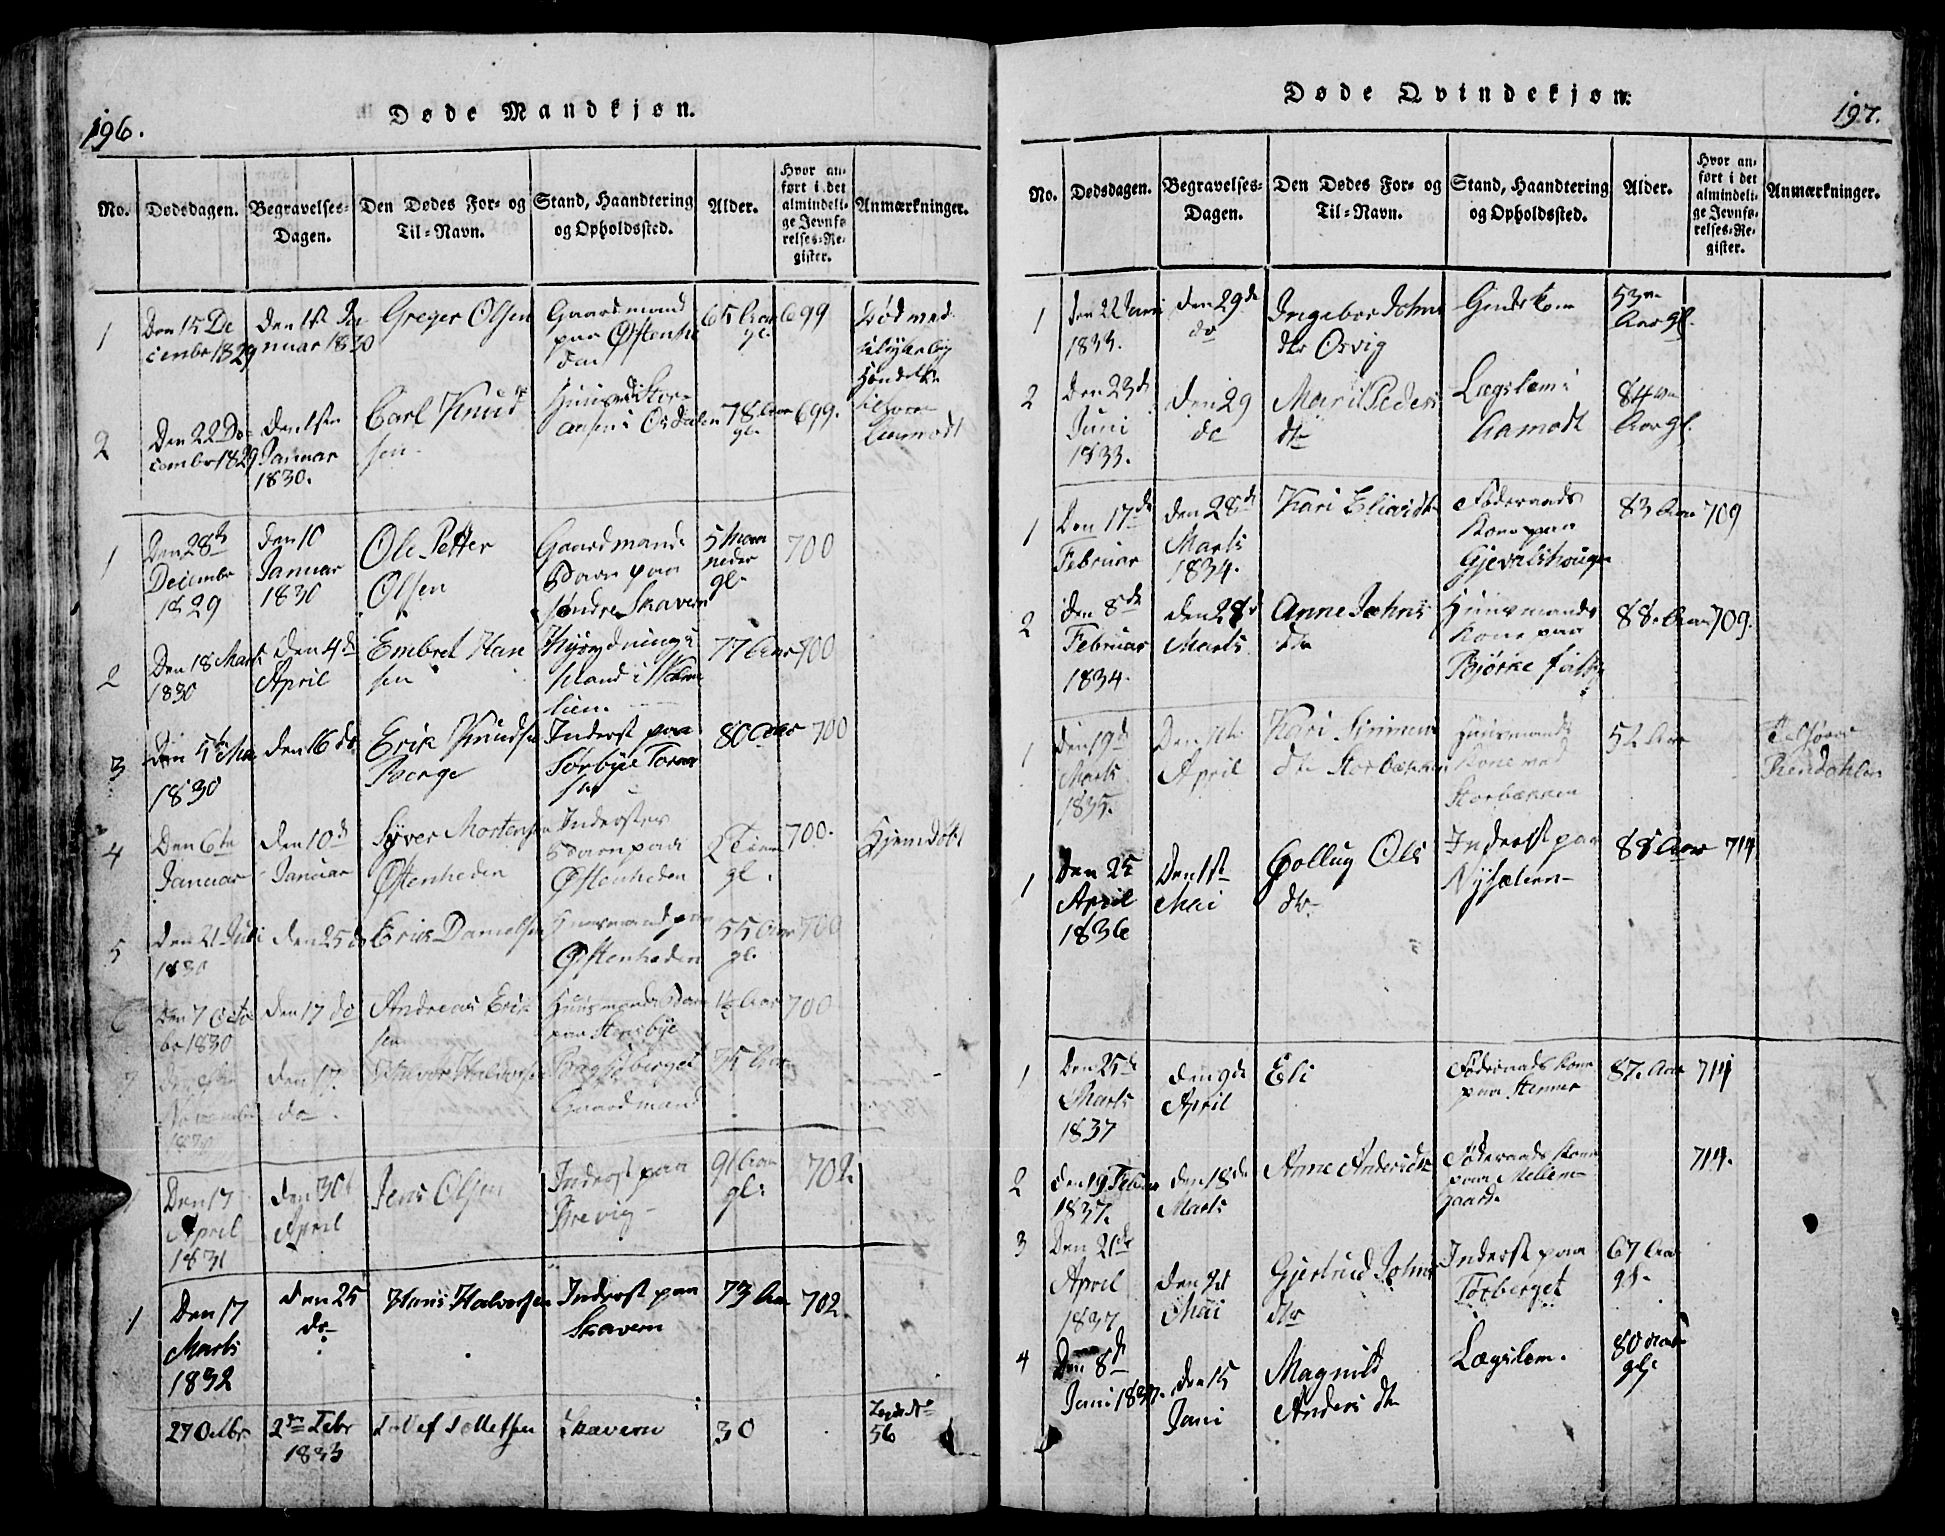 196.
Døde Mandkjøn.
No.
Dødsdagen.
Begravelses-
Dagen.
Den Dødes For- og
Til-Navn.
Stand, Haandtering
og Opholdssted.
Alder.
Hvor an-
ført i det
almindeli-
ge Jevnfø-
relses-Re-
gister.
Anmærkninger.
1
Den 15 De
cembr 1829
Den 1ste Ja
nuar 1830
Greger Olsen
Gaardmand
paa Østenhe
den
65 Aar
gl.
699
Død ved
2
Den 22 De-
cembr 1829
Den 1ste
Januar
1830.
Carl Knud
sen
i Osdalen
78 Aar
gl.
699.
Aamodt
1
Den 28de
Decembr
1829
Den 10
Januar
1830
Ole Petter
Olsen
Gaardmands
Barn paa
søndre Skavern
5 Maa
neder
gl.
700
2
Den 18 Marts
1830
Den 4de
April
Embret Han
sen
Rydnings
Mand i
lien.
77 Aar
700
3
Den 5te Ma
1830
Den 16 do
Erik Knudsen
Berge
Inderst paa
Sørbye
80 Aar
700
4
Den 6te
Januar
Den 10de
Januar
Syver Mortensen
Østenheden
Inderstes
Barn paa
Østenheden
gl.
700.
Hjemdøbt
5
Den 21 Juli
1830
Den 25 do
Erick Danielsen
Huusmand paa
Østenheden
55 Aar
gl.
700
6
Den 7 Octo
br 1830
Den 17 do
Andreas Erik
sen
Huusmands Barn
paa Stensbye
1½ Aar
700
7
1830
Den 17
do.
Halvor Halvorsen
Gaardmand
75 Aar
1
Den 17
April
1831
Den 30t
April
Jens Olsen
Inderst paa
Brevig
91 Aar
gl.
702.
1
Den 17
Marts
1832
Den 25
do
Hans Halvorsen
Inderst paa
Skavern
73 Aar
702.
27 Octbr
2den Febr
1833
Tollef Tollefsen
Skavern
30
56
Døde Qvindekjøn.
197.
No.
Dødsdagen.
Begravelses-
Dagen.
Den Dødes For- og
Til-Navn.
Stand, Haandtering
og Opholdssted.
Alder.
Hvor an-
ført i det
almindeli-
ge Jevnfø-
relses-Re-
gister.
Anmærkninger.
1
Den 22 Juni
1833.
Den 29de
do
Ingebor Johns
dtr Osvig
53
Aar gl.
2
Den 23de
Juni
1833.
Den 29
do
Marit Peders
dtr
Lægslem i
Aamodt
84
Aar gl.
1
Den 17de
Februar
Den 28de
Marts
1834.
Kari Elias dtr
Føderaads
Kone paa
Gjevalshaugen
83 Aar
709
2
Den 8de
Februar
1834.
Den 28de
Marts
Anne Johns
dtr
Huusmands
Kone paa
88 Aar
709.
1
Den 19de
Marts
1835.
Den 5te
April
Kari Simens
dtr Storbækken
Huusmands
Kone ved
Storbækken
52 Aar
Rendahlen
1
Den 25
April
1836
Den 1ste
Mai
Gollug Ols
dtr
Inderst paa
Nysæteren
88 Aar
714
1
Den 25de
Marts
1837
Den 9de
April
Eli
Føderaads Kone
paa Stenner
87 Aar
714
2
Den 19 Februar
1837.
Den 18de
Marts
Anne Anders dtr
Føderaads Kone
paa Mellem-
gaard
714.
3
Den 21de
April
1837
Den 9de
Mai
Gjertrud Johns
dtr
Inderst paa
Torberget
67 Aar
gl.
4
Den 8de
Juni 1837.
Den 15
Juni
Magnild
Anders dtr
Lægslem.
80 Aar
gl.